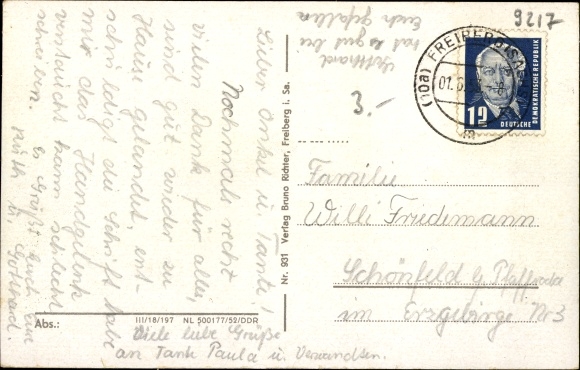 Lieber Onkel u. Tante!
Nochmals recht
vielen Dank für alles,
sind gut wieder zu
Hause gelandet, ent-
schuldigt die Schrift habe
mir das Handgelenk
verstaucht kann schlecht
schreiben. Es Grüßt Euch
Ruth u. Gotthard.
Gotthard
hat es gut bei
Euch gefallen
Viele liebe Grüße
an Tante Paula u. Verwandten.
Abs.:
III/18/197 NL 500177/52/DDR
Nr. 931 Verlag Bruno Richter, Freiberg i. Sa.
9217
3.-
(10a) FREIBERG (SACHS
01.
m
12
DEUTSCHE
DEMOKRATISCHE REPUBLIK
Familie
Willi Friedemann
Schönfeld b. Pfaffroda
im Erzgebirge Nr 3